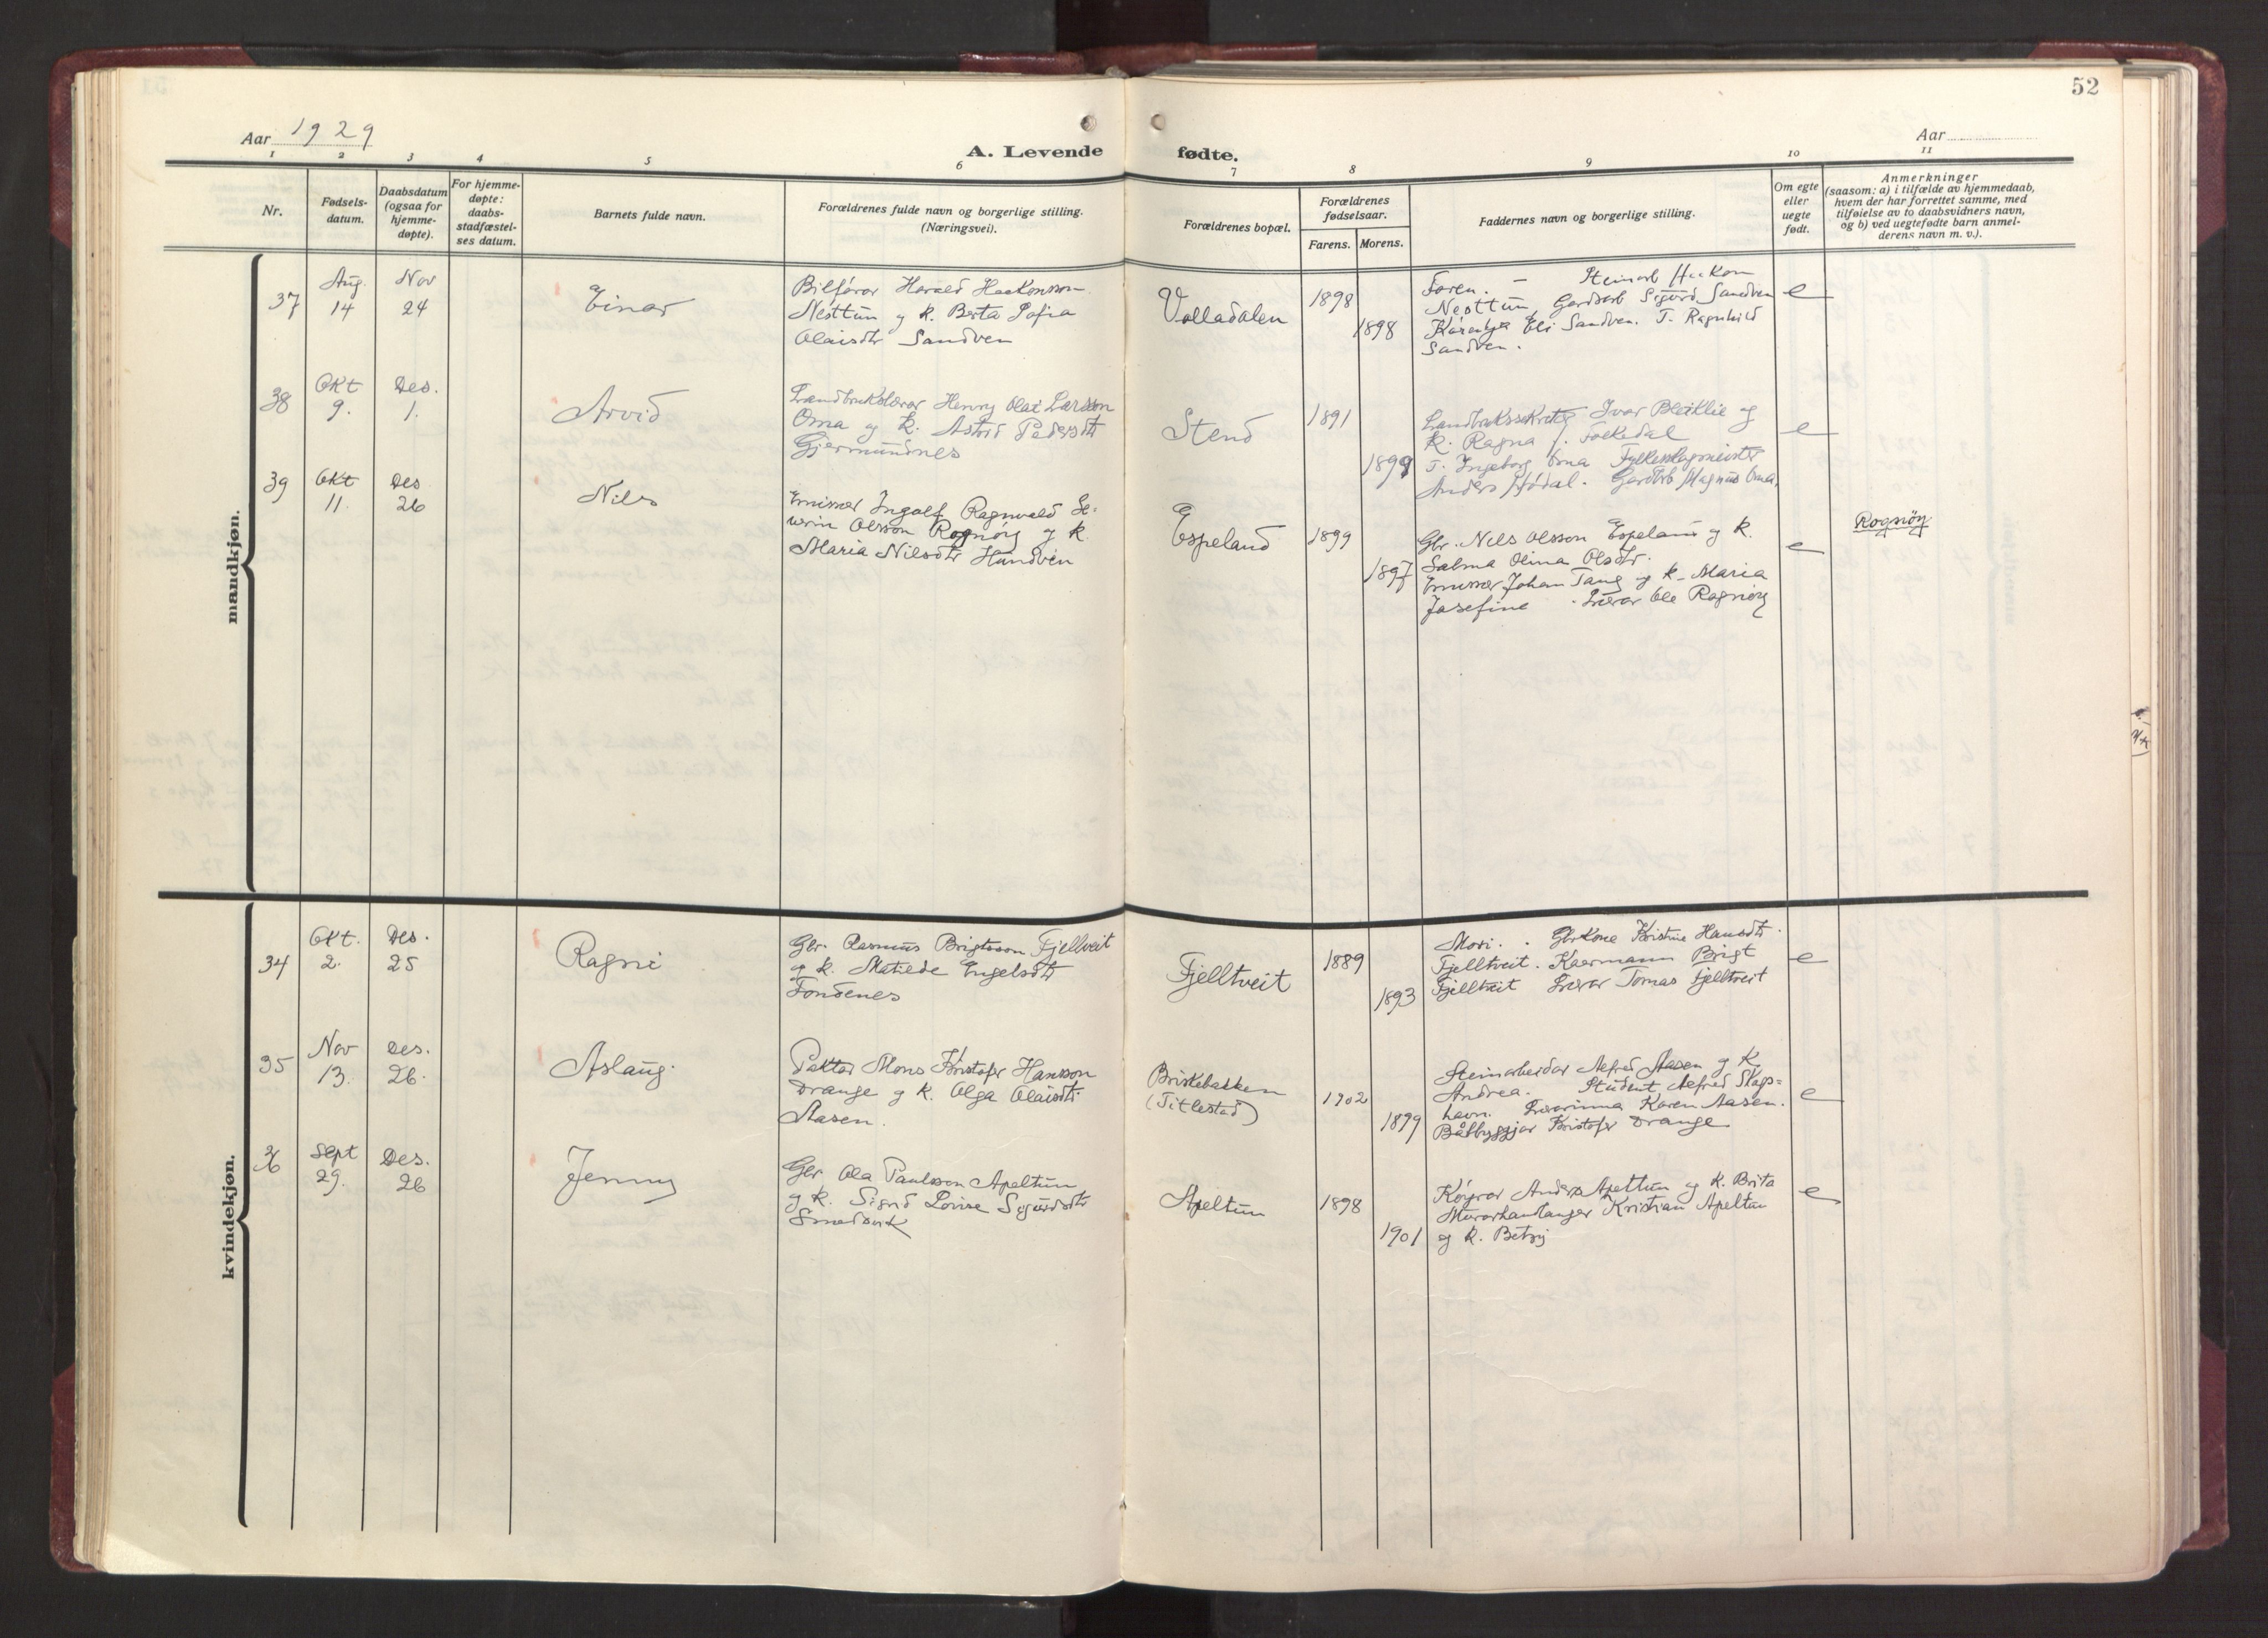 52
Aar 1929
A. Levende fødte.
Aar
1 2 3 4 5 6 7 8 9 10 11
Nr.
Fødsels-
datum.
Daabsdatum
(ogsaa for
hjemme-
døpte).
For hjemme-
døpte:
daabs-
stadfæstel-
ses datum.
Barnets fulde navn.
Forældrenes fulde navn og borgerlige stilling.
(Næringsvei).
Forældrenes bopæl.
Forældrenes
fødselsaar.
Farens. Morens.
Faddernes navn og borgerlige stilling.
Om egte
eller
uegte
født.
Anmerkninger
(saasom: a) i tilfælde av hjemmedaab,
hvem der har forrettet samme, med
tilføielse av to daabsvidners navn,
og b) ved uegtefødte barn anmel-
derens navn m. v.).
mandkjøn.
37
Aug.
14
Nov
24
Einar
Bilførar Harald Haakonsson
Nesttun og k. Berta Sofia
Olaisdtr Sandven
Volladalen
1898
1898
Faren. – Steinarb Haakon
Nesttun, Gardsarb Sigurd Sandven
Eli Sandven. T. Ragnhild
Sandven.
e
38
Okt
9.
Des.
1.
Arvid
Landbrukslærar Henry Olai Larsson
Oma og k. Astrid Pedersdtr
Gjermundnes
Stend
1891
1899
Ivar Bleiklie og
k. Ragna f. Folkedal
T. Ingeborg Oma
Anders Gardbr Magnus Oma.
e
39
Okt
11.
Des
26
Nils
Emissær Ingolf Ragnvald Se-
verin Olsson Rognøy og k.
Maria Nilsdtr Hundven
Espeland
1899
1897
Gbr. Nils Olsson Espeland og k.
Salma Olina Olsdtr.
Emissær Johan Tang og k. Maria
Josefine . Lærar Ole Rognøy
e
Rognøy
kvindekjøn.
34
Okt.
2.
Des.
25
Ragni
Gbr. Rasmus Brigtsson Fjelltveit
og k. Matilde Engelsdtr
Tondenes
Fjelltveit
1889
1893
Mori. . Gbrkone Kristine Hansdtr.
Fjelltveit. Brigt
Fjelltveit Lærar Tomas Fjelltveit
e
35
Nov
13.
Des.
26.
Aslaug.
Paktar Mons Kristofer Hansson
Drange og k. Olga Olaisdtr.
Aasen.
Briskebakken
(Titlestad)
1902
1899
Steinarbeidar Alfred Aasen og k.
Andrea. Student Alfred Skogs-
havn. Lærarinna Karen Aasen.
Båtbyggjar Kristofer Drange
e
36
Sept
29.
Des.
26
Jenny
Gbr Ola Paulsson Apeltun
og k. Sigrid Lovise Sigurdsdtr
Smedsvik
Apeltun
1898
1901
Køyrar Anders Apeltun og k. Brita
Murarhandlanger Kristian Apeltun
og k. Betsy
e